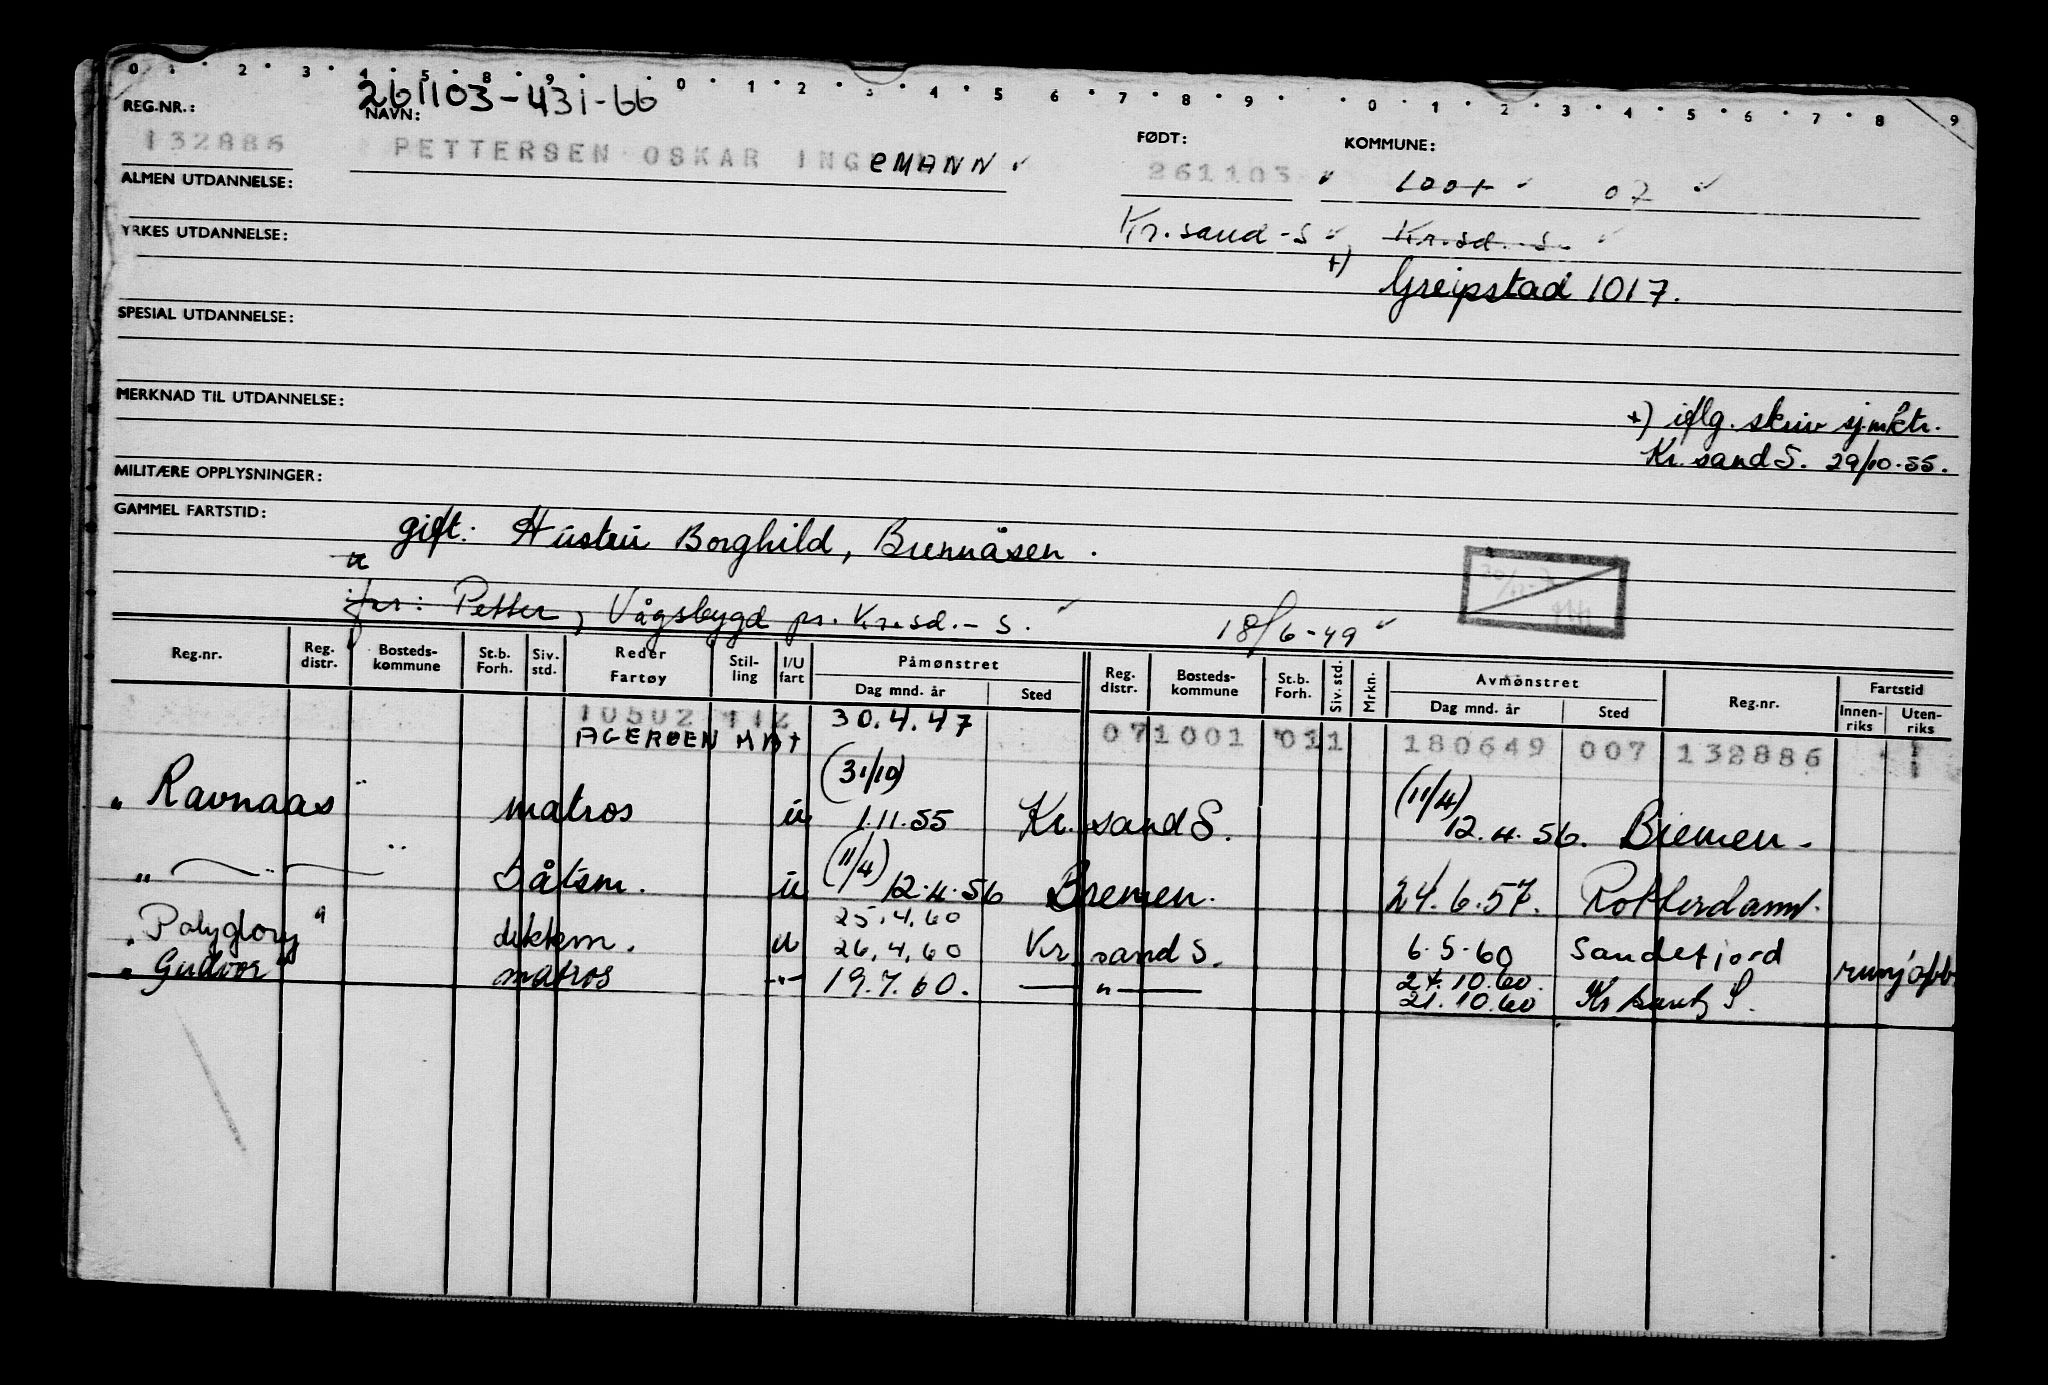 0 1 2 3 4 5 8 9 0 1 2 3 4 5 6 7 8 9 0 1 2 3 4 5 6 7 8 9
261103-431-66
REG.NR.: NAVN: FØDT: KOMMUNE:
132886 PETTERSEN OSKAR INGEMANN 261103 1001 07
ALMEN UTDANNELSE:
Kr.sand-S Kr.sd.-S.
YRKES UTDANNELSE:
+) Greipstad 1017.
SPESIAL UTDANNELSE:
MERKNAD TIL UTDANNELSE:
+) iflg. skriv sj.mktr.
Kr.sand S. 29/10-55.
MILITÆRE OPPLYSNINGER:
GAMMEL FARTSTID:
gift: Hustru Borghild, Brennåsen.
far: Petter, Vågsbygd pr. Kr.sd.-S.
18/6-49
Reg.nr. Reg. distr. Bosteds-kommune St.b. Forh. Siv. std. Reder Fartøy Stil-ling I/U fart Påmønstret Dag mnd. år Sted Reg. distr. Bosteds-kommune St.b. Forh. Siv. std. Mrkn. Avmønstret Dag mnd. år Sted Reg.nr. Fartstid Innen-riks Uten-riks
10502 112 30.4.47
AGERØEN 071001 011 180649 007 132886 1
(31/10) (11/4)
" Ravnaas " matros u 1.11.55 Kr.sand S. 12.4.56. Bremen.
(11/4)
" " båtsm. u 12.4.56 Bremen. 24.6.57. Rotterdam.
25.4.60
" Polyglory " dekkm. u 26.4.60 Kr.sand S. 6.5.60 Sandefjord
" Gudvor " matros -"- 19.7.60. " 24.10.60.
21.10.60 Kr.sand S.